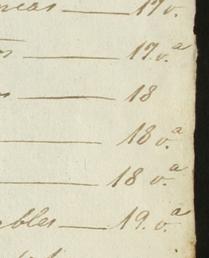 17 v.
17. v.ª
18
18 v.ª
18 v.ª
bles 19. v.ª